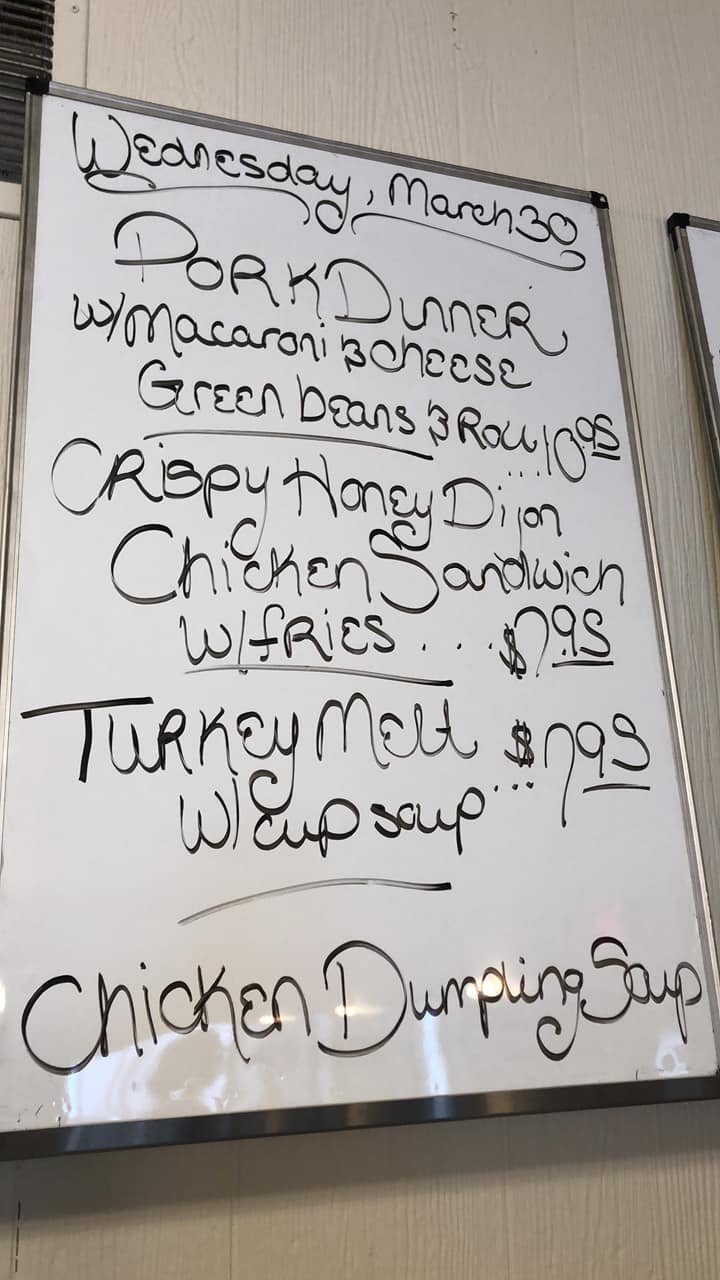 Wednesday, March 30
Pork Dinner
w/Macaroni & Cheese
Green beans & Roll ... 10 95
Crispy Honey Dijon
Chicken Sandwich
w/fries . . . . $7.95
Turkey Melt ... $7 95
w/cup soup
Chicken Dumpling Soup